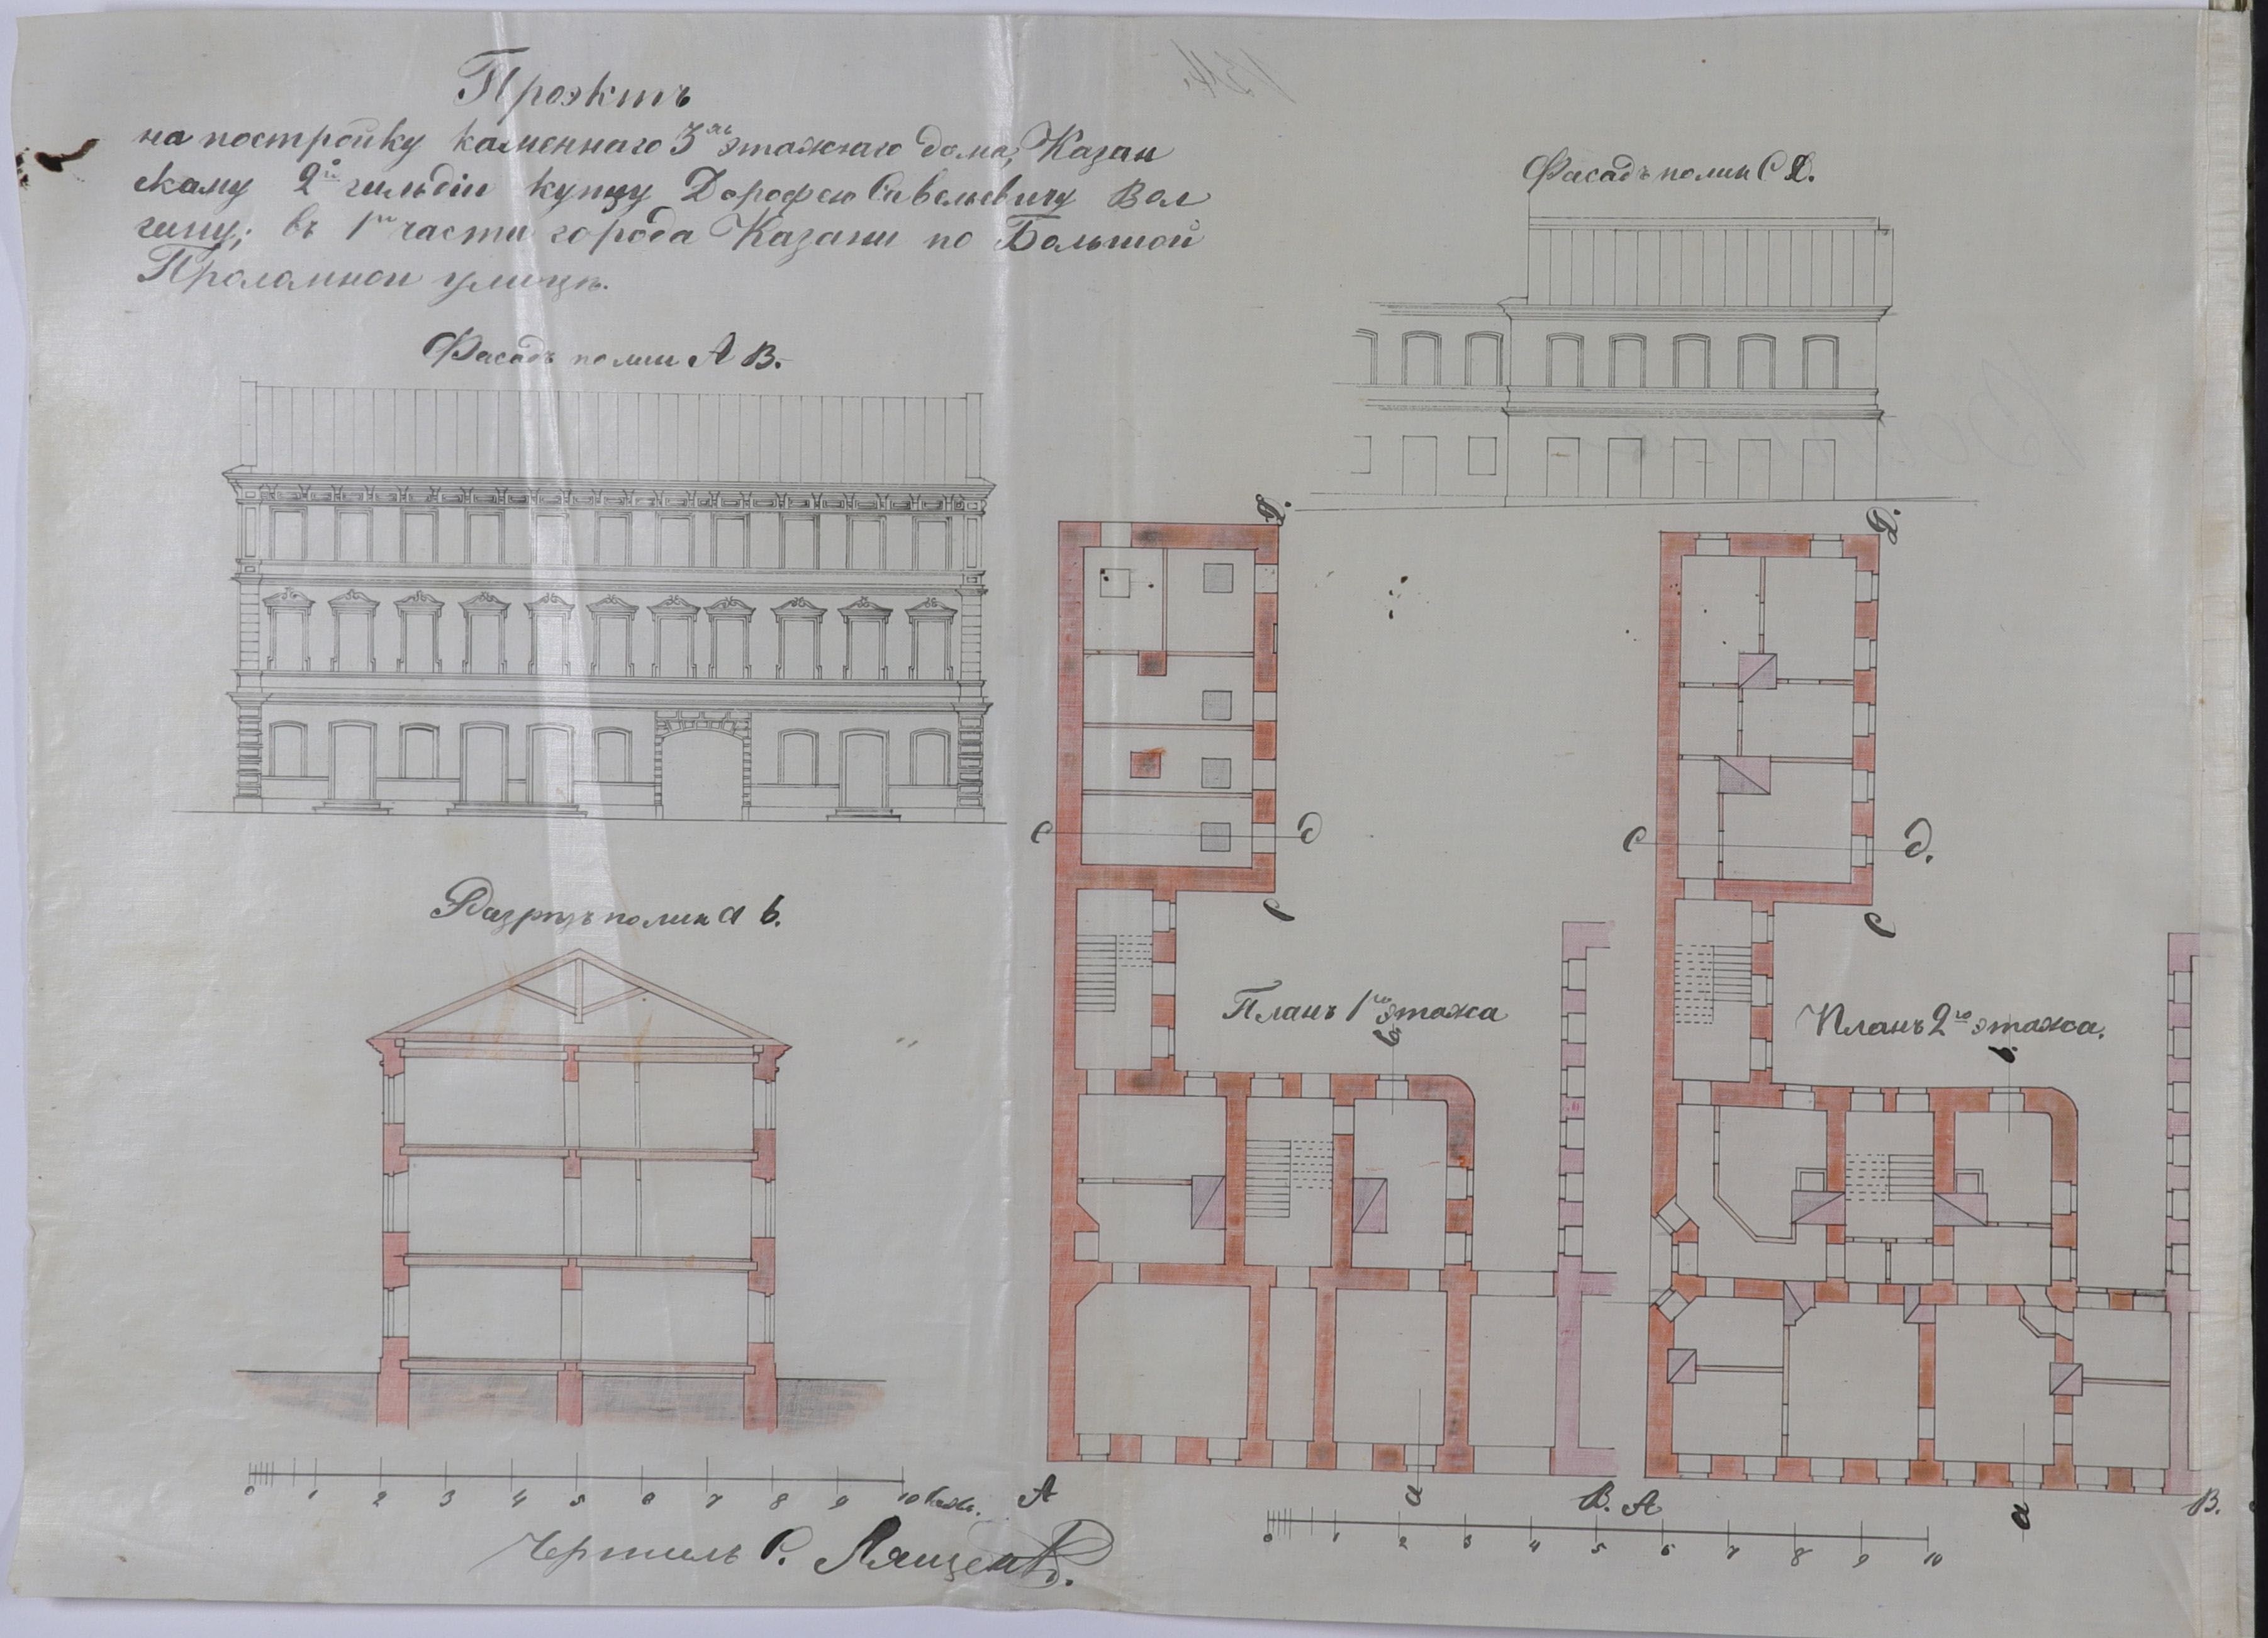 Проэктъ
на постройку каменнаго 3хъ этажнаго дома, Казан
скому 2й гильдіи купцу Дорофею Савельевичу Вол
гину; въ 1й части города Казани по Большой
Проломной улицѣ.
Фасадъ по лин А В.
Фасадъ по лин С Д.
Разрѣзъ по лин а b.
Д.
Д.
с
д
с
д.
С
С
Планъ 1го этажа
Планъ 2го этажа.
b
b.
а
а
А
В.
А
В.
0 1 2 3 4 5 6 7 8 9 10 саж.
0 1 2 3 4 5 6 7 8 9 10
Чертилъ